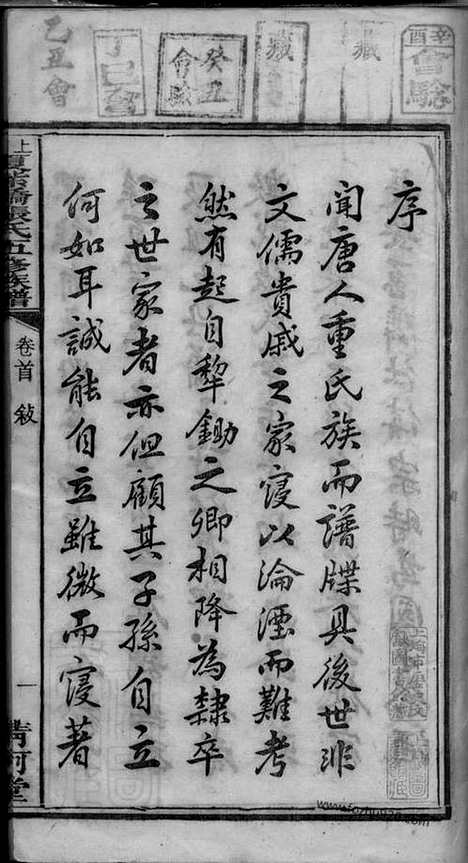 序
聞唐人重氏族而譜牒具後世非
文儒貴戚之家寖以淪湮而難考
然有起自犂鋤之卿相降為隸卒
之世家者亦但顧其子孫自立
何如耳誠能自立雖微而寖著
氏五修族譜
卷首 敍
一
清河堂
辛酉會驗
藏
藏
癸丑會驗
丁巳會
乙丑會